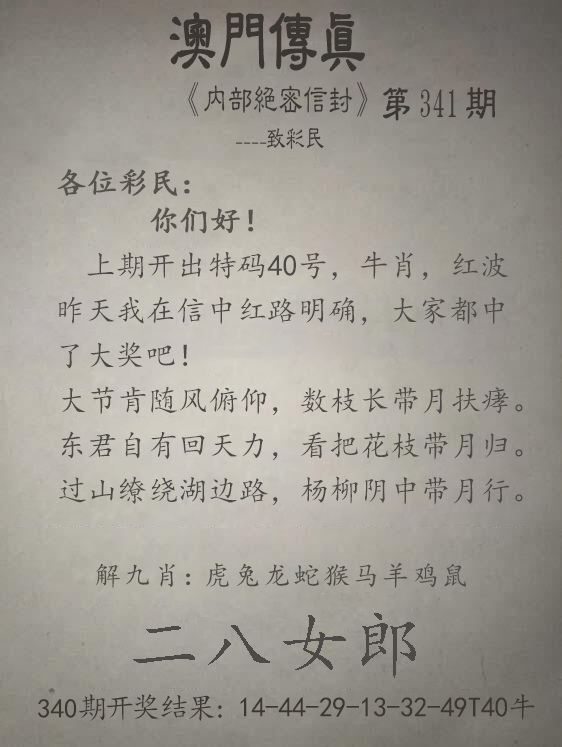 澳門傳真
《内部絕密信封》第341期
----致彩民
各位彩民：
你们好！
上期开出特码40号，牛肖，红波
昨天我在信中红路明确，大家都中
了大奖吧！
大节肯随风俯仰，数枝长带月扶瘆。
东君自有回天力，看把花枝带月归。
过山缭绕湖边路，杨柳阴中带月行。
解九肖：虎兔龙蛇猴马羊鸡鼠
二八女郎
340期开奖结果：14-44-29-13-32-49T40牛